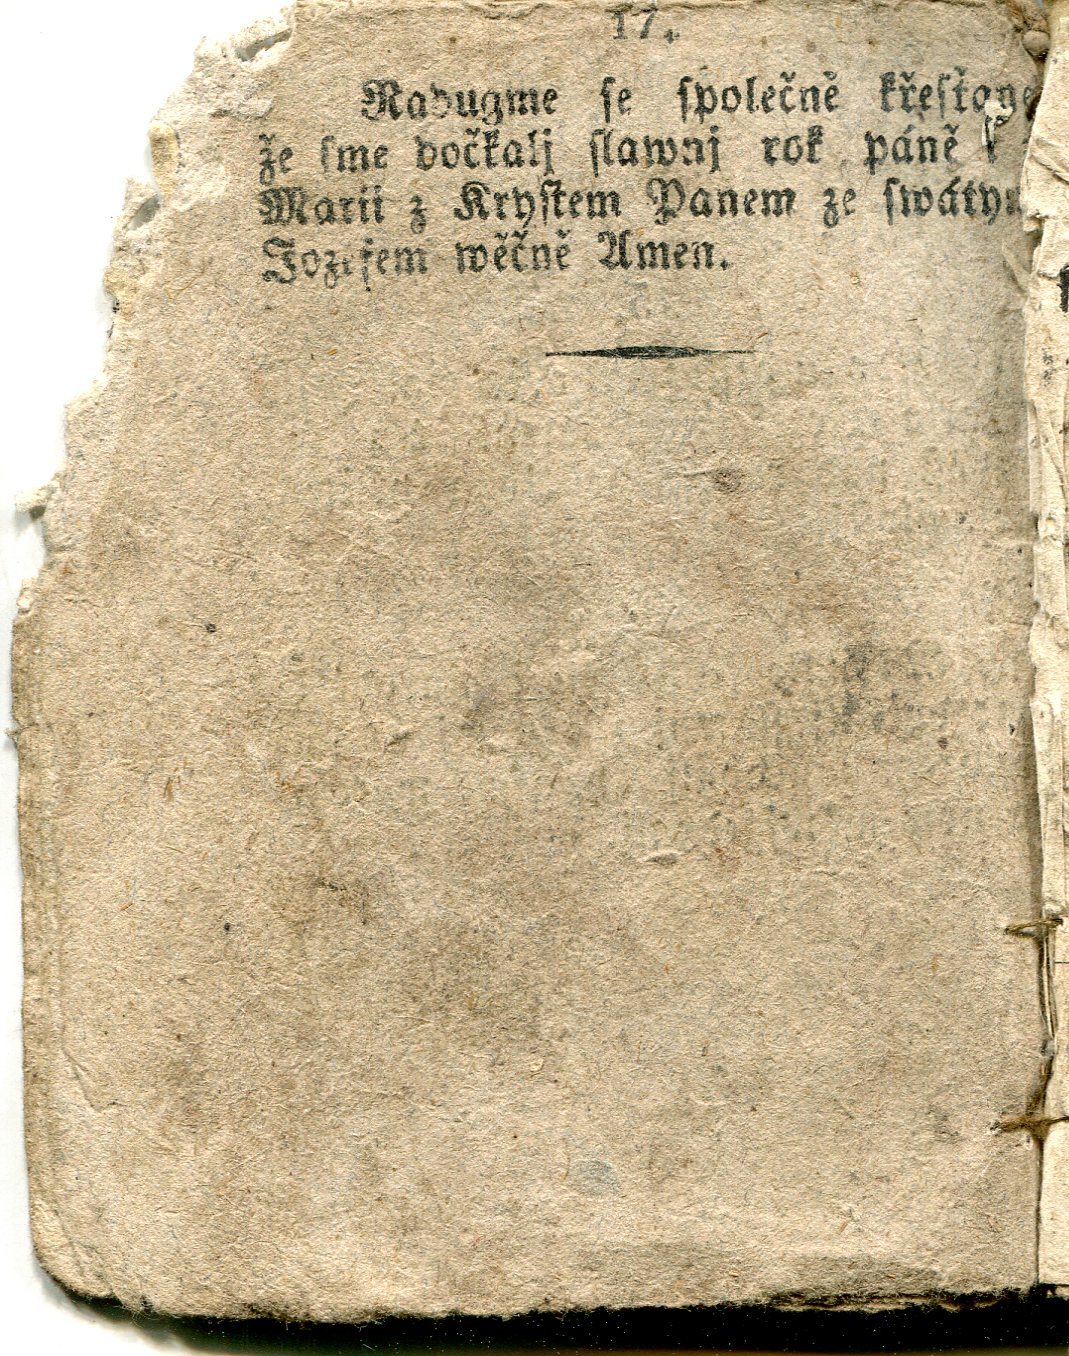 17.
Radugme se společně křesťane
že sme dočkalj slawnj rok páně
Marii z Krystem Panem ze swátym
Jozefem wěčně Amen.